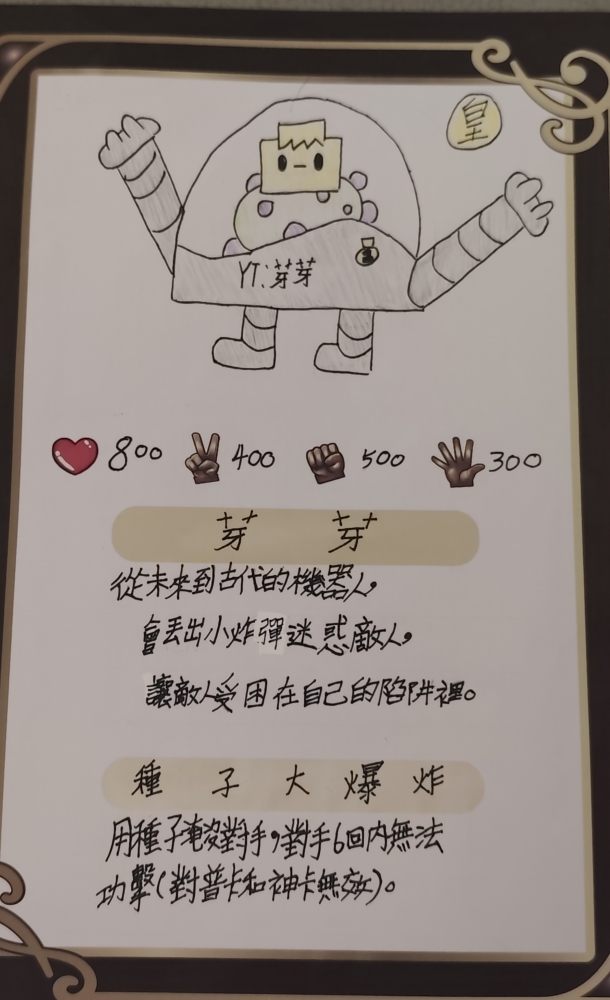 皇
YT:芽芽
800 400 500 300
芽芽
從未來到古代的機器人,
會丟出小炸彈迷惑敵人,
讓敵人受困在自己的陷阱裡。
種子大爆炸
用種子淹沒對手,對手6回內無法
功擊(對普卡和神卡無效)。